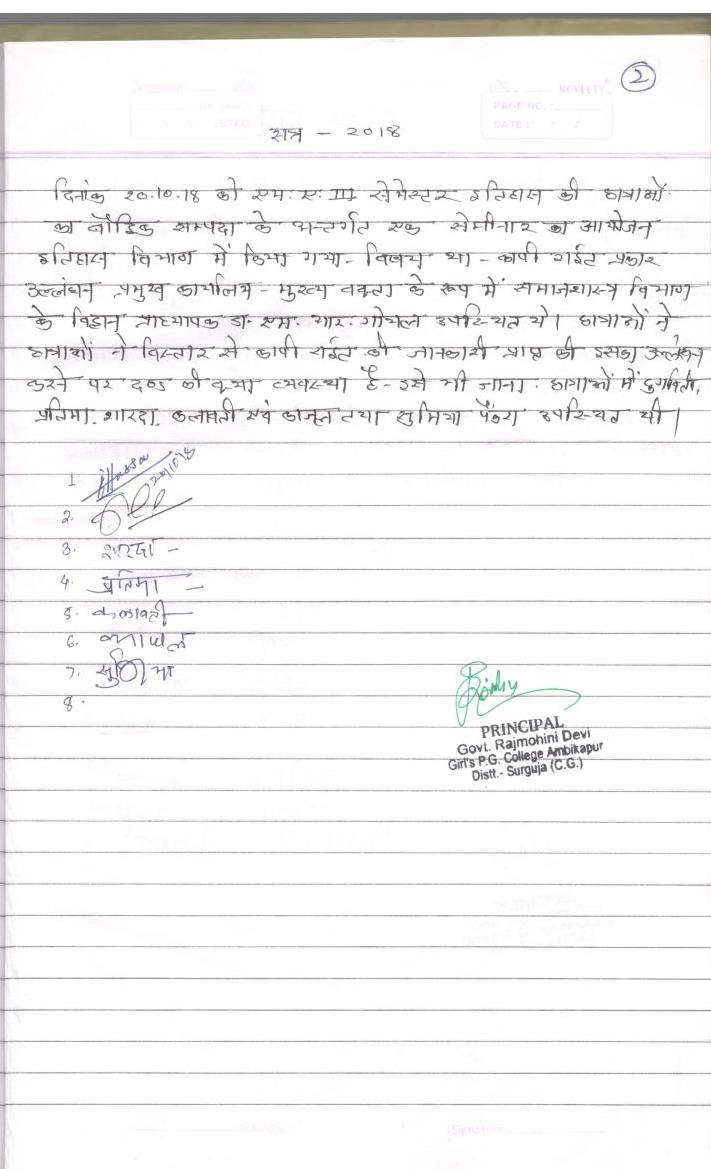 2
NOVELTY
PAGE NO.:
DATE: / /
सत्र - २०१८
दिनांक २०.१०.१८ को एम. ए. III सेमेस्टर इतिहास की छात्राओं
का बौद्धिक सम्पदा के अन्तर्गत एक सेमीनार का आयोजन
इतिहास विभाग में किया गया- विषय था - कापी राईट प्रकार
उल्लंघन प्रमुख कार्यालय - मुख्य वक्ता के रूप में समाजशास्त्र विभाग
के विद्वान प्राध्यापक डा. एम. आर. गोयल उपस्थित थे। छात्राओं ने
छात्राओं ने विस्तार से कापी राईट की जानकारी प्राप्त की इसका उल्लंघन
करने पर दण्ड की क्या व्यवस्था है - इसे भी जाना. छात्राओं में दुर्गावती,
प्रतिमा, शारदा, कलावती एवं काजल तथा सुमित्रा पैंकरा उपस्थित थी।
1.
2.
3. शारदा -
4. प्रतिमा -
5. कलावती
6. काजल
7.
8.
PRINCIPAL
Govt. Rajmohini Devi
Girl's P.G. College Ambikapur
Distt.- Surguja (C.G.)
Signature